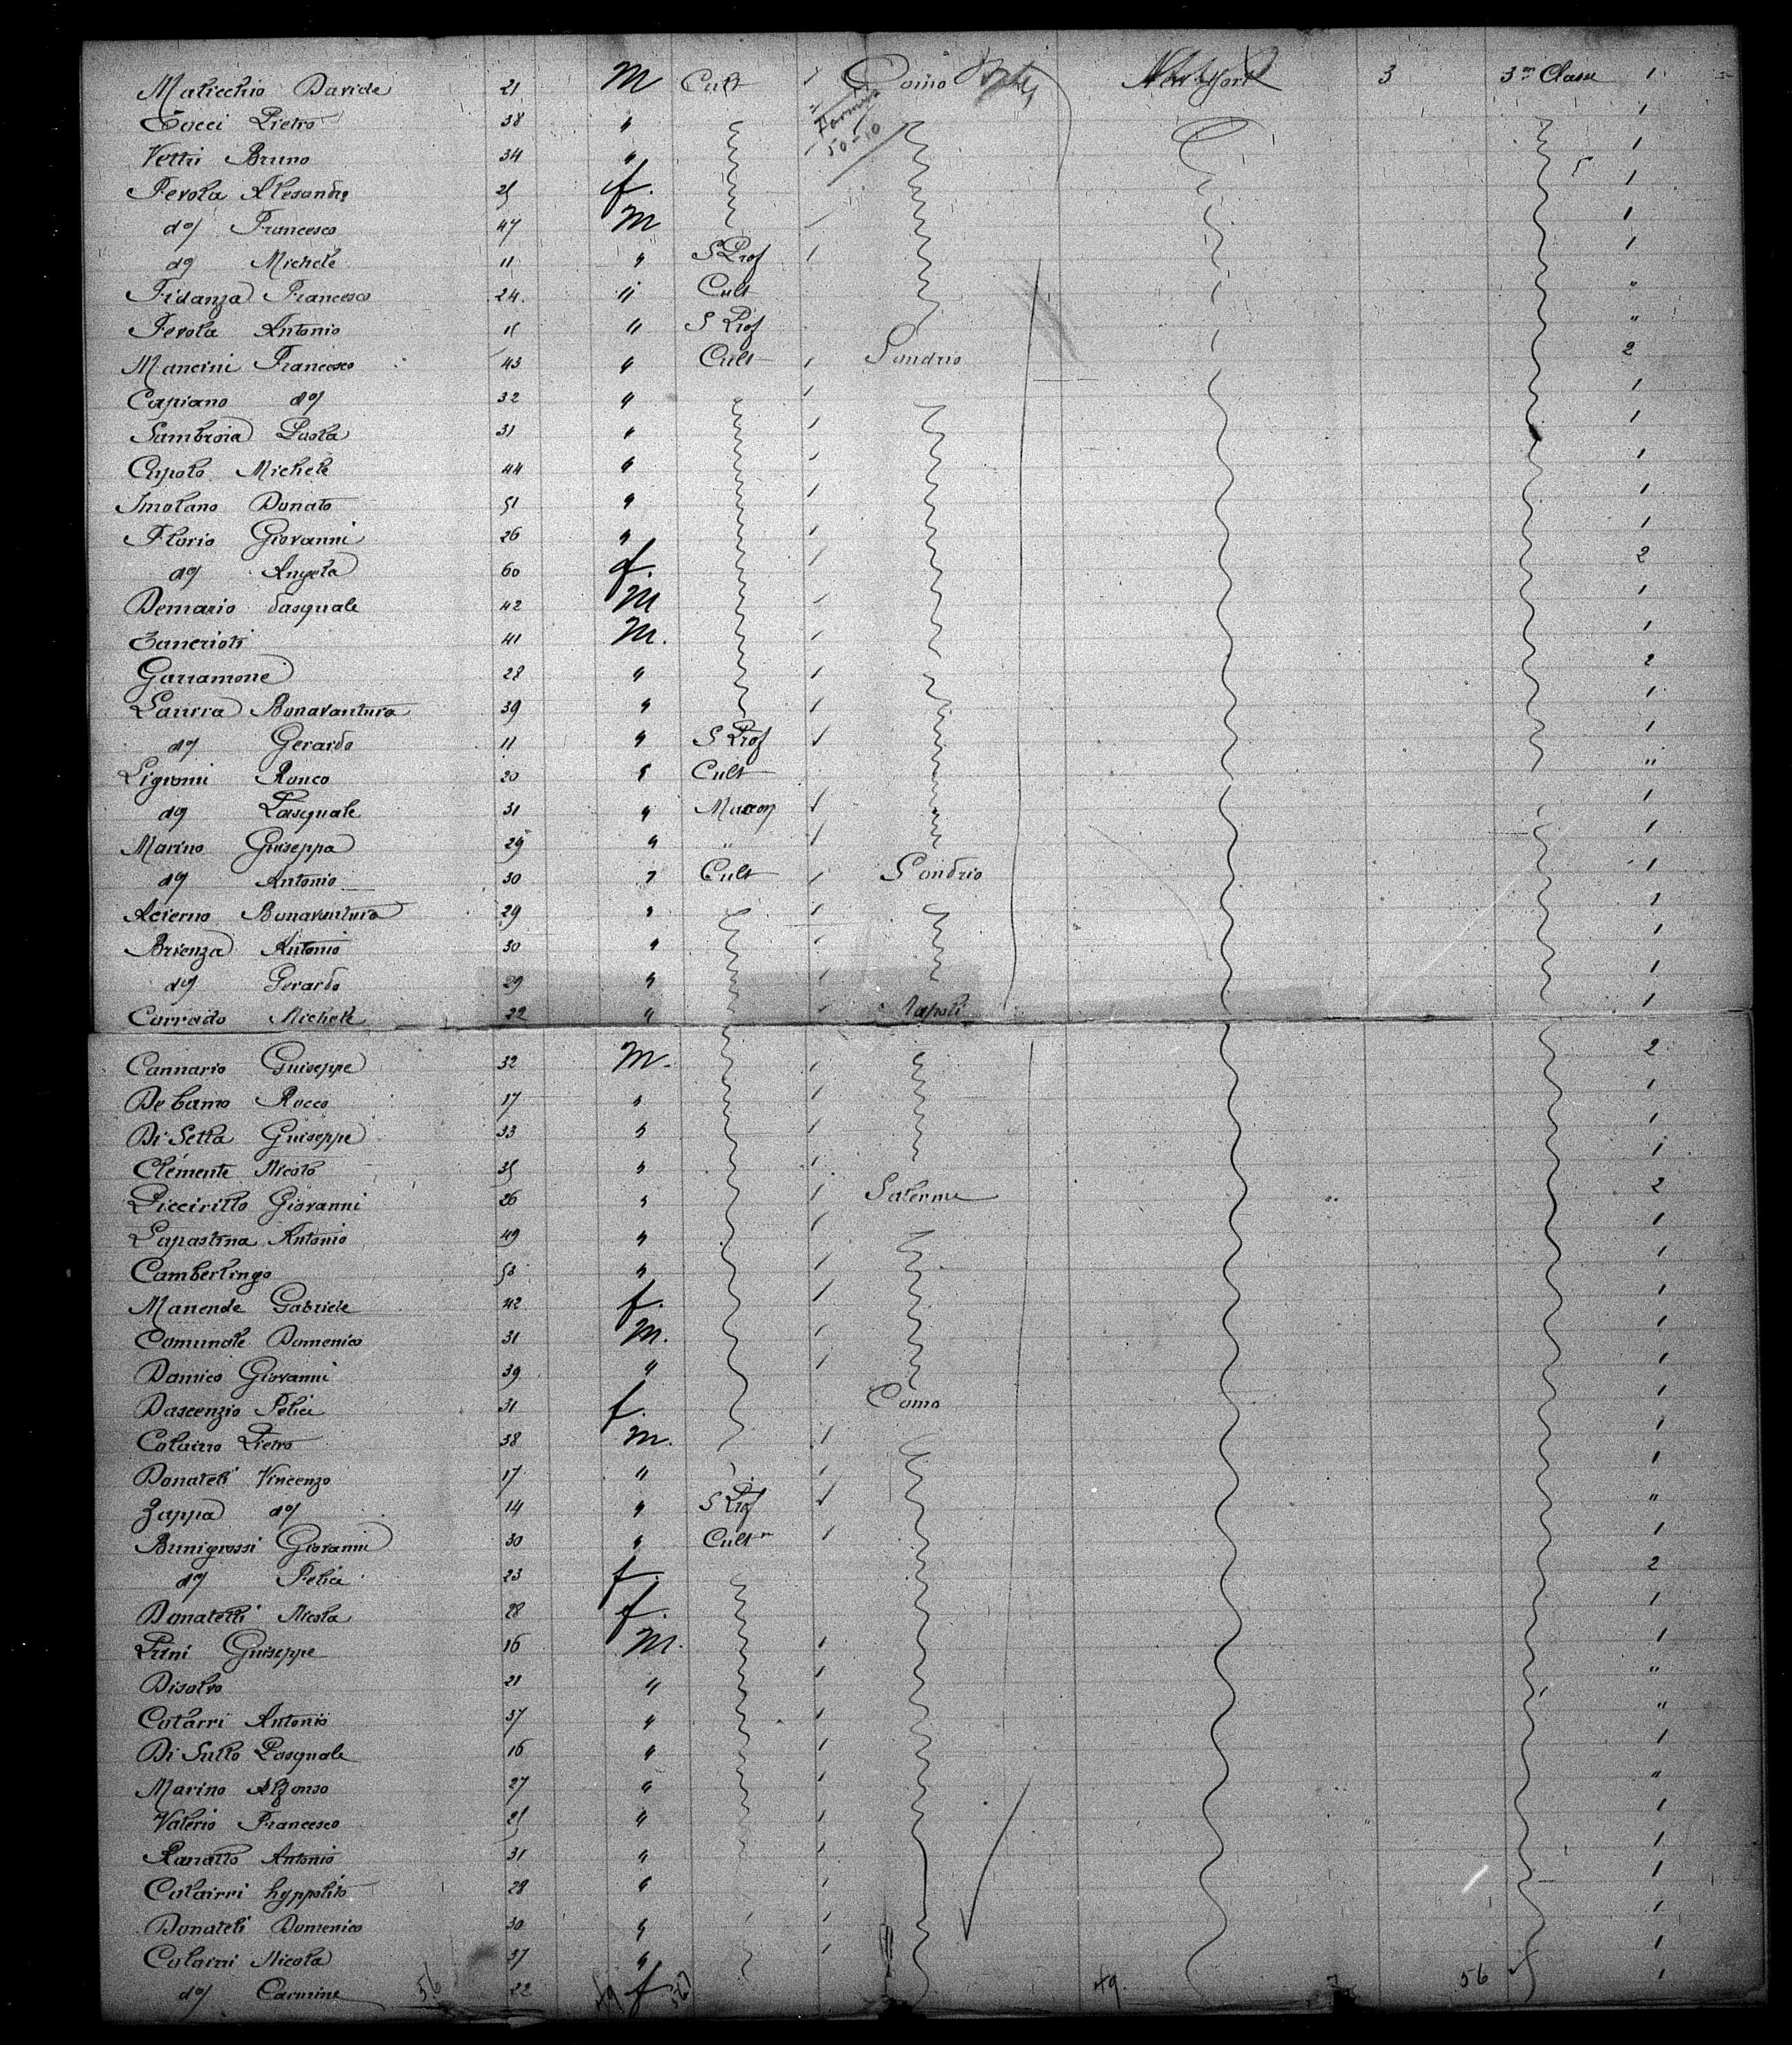 Maticchio Davide 21 M Cult 1 Como Italy New York 3 3me Classe 1
Tucci Pietro 38 " 1
Farmers 50-10
Vettri Bruno 34 " 1
Ferola Alesandro 25 f. 1
do Francesco 47 M 1
do Michele 11 " S Prof 1 1
Fidanza Francesco 24 " Cult "
Ferola Antonio 15 " S Prof "
Mancini Francesco 43 " Cult 1 Sondrio 2
Capiano do 32 " 1 1
Sambroia Paola 31 " 1 1
Cupolo Michele 44 " 1 1
Imolano Donato 51 " 1 1
Florio Giovanni 26 " 1 1
do Angela 60 f. 1 2
Demario Pasquale 42 M 1 1
Zancrioti 41 M. 1 1
Garramone 28 " 1 2
Laurra Bonavantura 39 " 1 1
do Gerardo 11 " S Prof 1 1
Ligromi Rouco 20 " Cult "
do Pasquale 31 " Macon 1 1
Marino Guiseppa 29 " " 1 1
do Antonio 30 " Cult 1 Sondrio 1
Acierno Bonaventura 29 " 1 1
Brienza Antonio 30 " 1 1
do Gerardo 29 " 1 1
Corrado Michele 22 " 1 Napoli 1
Cannario Guiseppe 32 M. 1 2
De Camo Rocco 17 " 1 1
Di Setta Guiseppe 33 " 1 1
Clémente Nicola 35 " 1 1
Piccirillo Giovanni 26 " 1 Salerne 2
Lapastina Antonio 49 " 1 1
Camberlingo 50 " 1 1
Manende Gabriele 42 f. 1 1
Comunale Domenico 31 M. 1 1
Damico Giovanni 39 " 1 1
Dascenzio Felici 31 f. Como 1
Colairro Pietro 38 M. 1 1
Donateli Vincenzo 17 " 1 1
Zappa do 14 " S Prof 1 "
Bunigrossi Giovanni 30 " Cultr 1 1
do Felici 23 f. 2
Donatelli Nicola 28 f. 1
Prini Guiseppe 16 M. 1 1
Disalvo 21 " 1 "
Colarri Antonio 37 " 1 "
Di Sullo Pasquale 16 " 1 1
Marino Alfonso 27 " 1 "
Valerio Francesco 21 " 1 1
Ranallo Antonio 31 " 1 1
Colairri hyppolito 28 " 1 1
Donateli Domenico 30 " 1 1
Colarni Nicola 37 " 1 1
do Carmine 56 22 49 f 567 49. 7 56 1